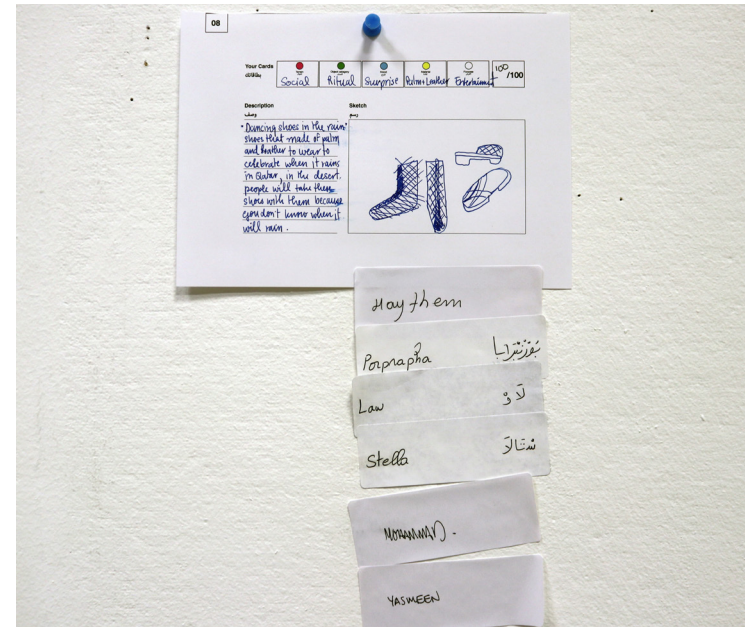 08
Your Cards
بطاقاتك
Social Ritual Surprise Palm+Leather Entertainment 100 /100
Description Sketch
وصف رسم
• Dancing shoes in the rain"
shoes that made of palm
and leather to wear to
celebrate when it rains
in Qatar, in the desert.
people will take these
shoes with them because
you don't know when it
will rain.
Haythem
Porprapha
Law لَاوْ
Stella سْتَالَا
MOHAMMAD.
YASMEEN